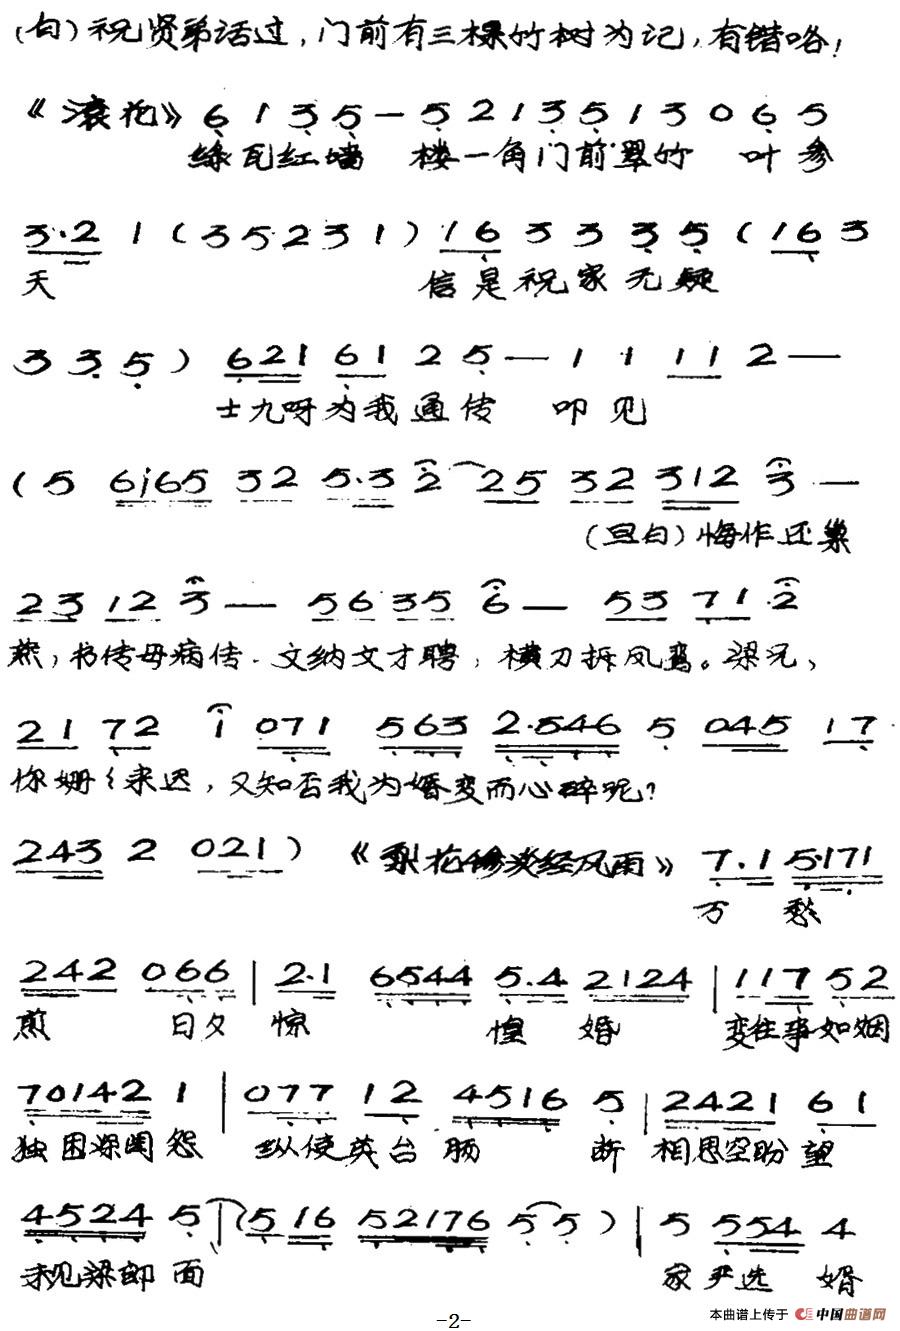 (白)祝贤弟话过,门前有三棵竹树为记,有错咯!
《滚花》6 1 3 5 — 5 2 1 3 5 1 3 0 6 5
绿瓦红墙 楼一角门前翠竹 叶参
3·2 1 (3 5 2 3 1) 16 3 3 3 5 (16 3
天 信是祝家无疑
3 3 5) 621 61 2 5 — 1 1 11 2 —
士九呀为我通传 叩见
(5 6i65 32 5·3 2 25 32 312 3 —
(旦白)悔作还巢
23 12 3 — 56 35 6 — 53 71 2
燕,书传母病传.文纳文才聘,横刀拆凤鸾。梁兄、
21 72 i 071 563 2·546 5 045 17
你姗〻来迟,又知否我为婚变而心碎呢?
243 2 021) 《梨花惨淡经风雨》 7·1 5·171
万 愁
242 066 | 2·1 6544 5·4 2124 | 117 52
煎 日夕 惊 惶 婚 变往事如烟
70142 1 | 077 12 4516 5 | 2421 61
独困深闺怨 纵使英台肠 断 相思空盼望
4524 5 | (5 16 52176 5 5) | 5 554 4
未见梁郎面 家严选 婿
-2-
本曲谱上传于 中国曲谱网